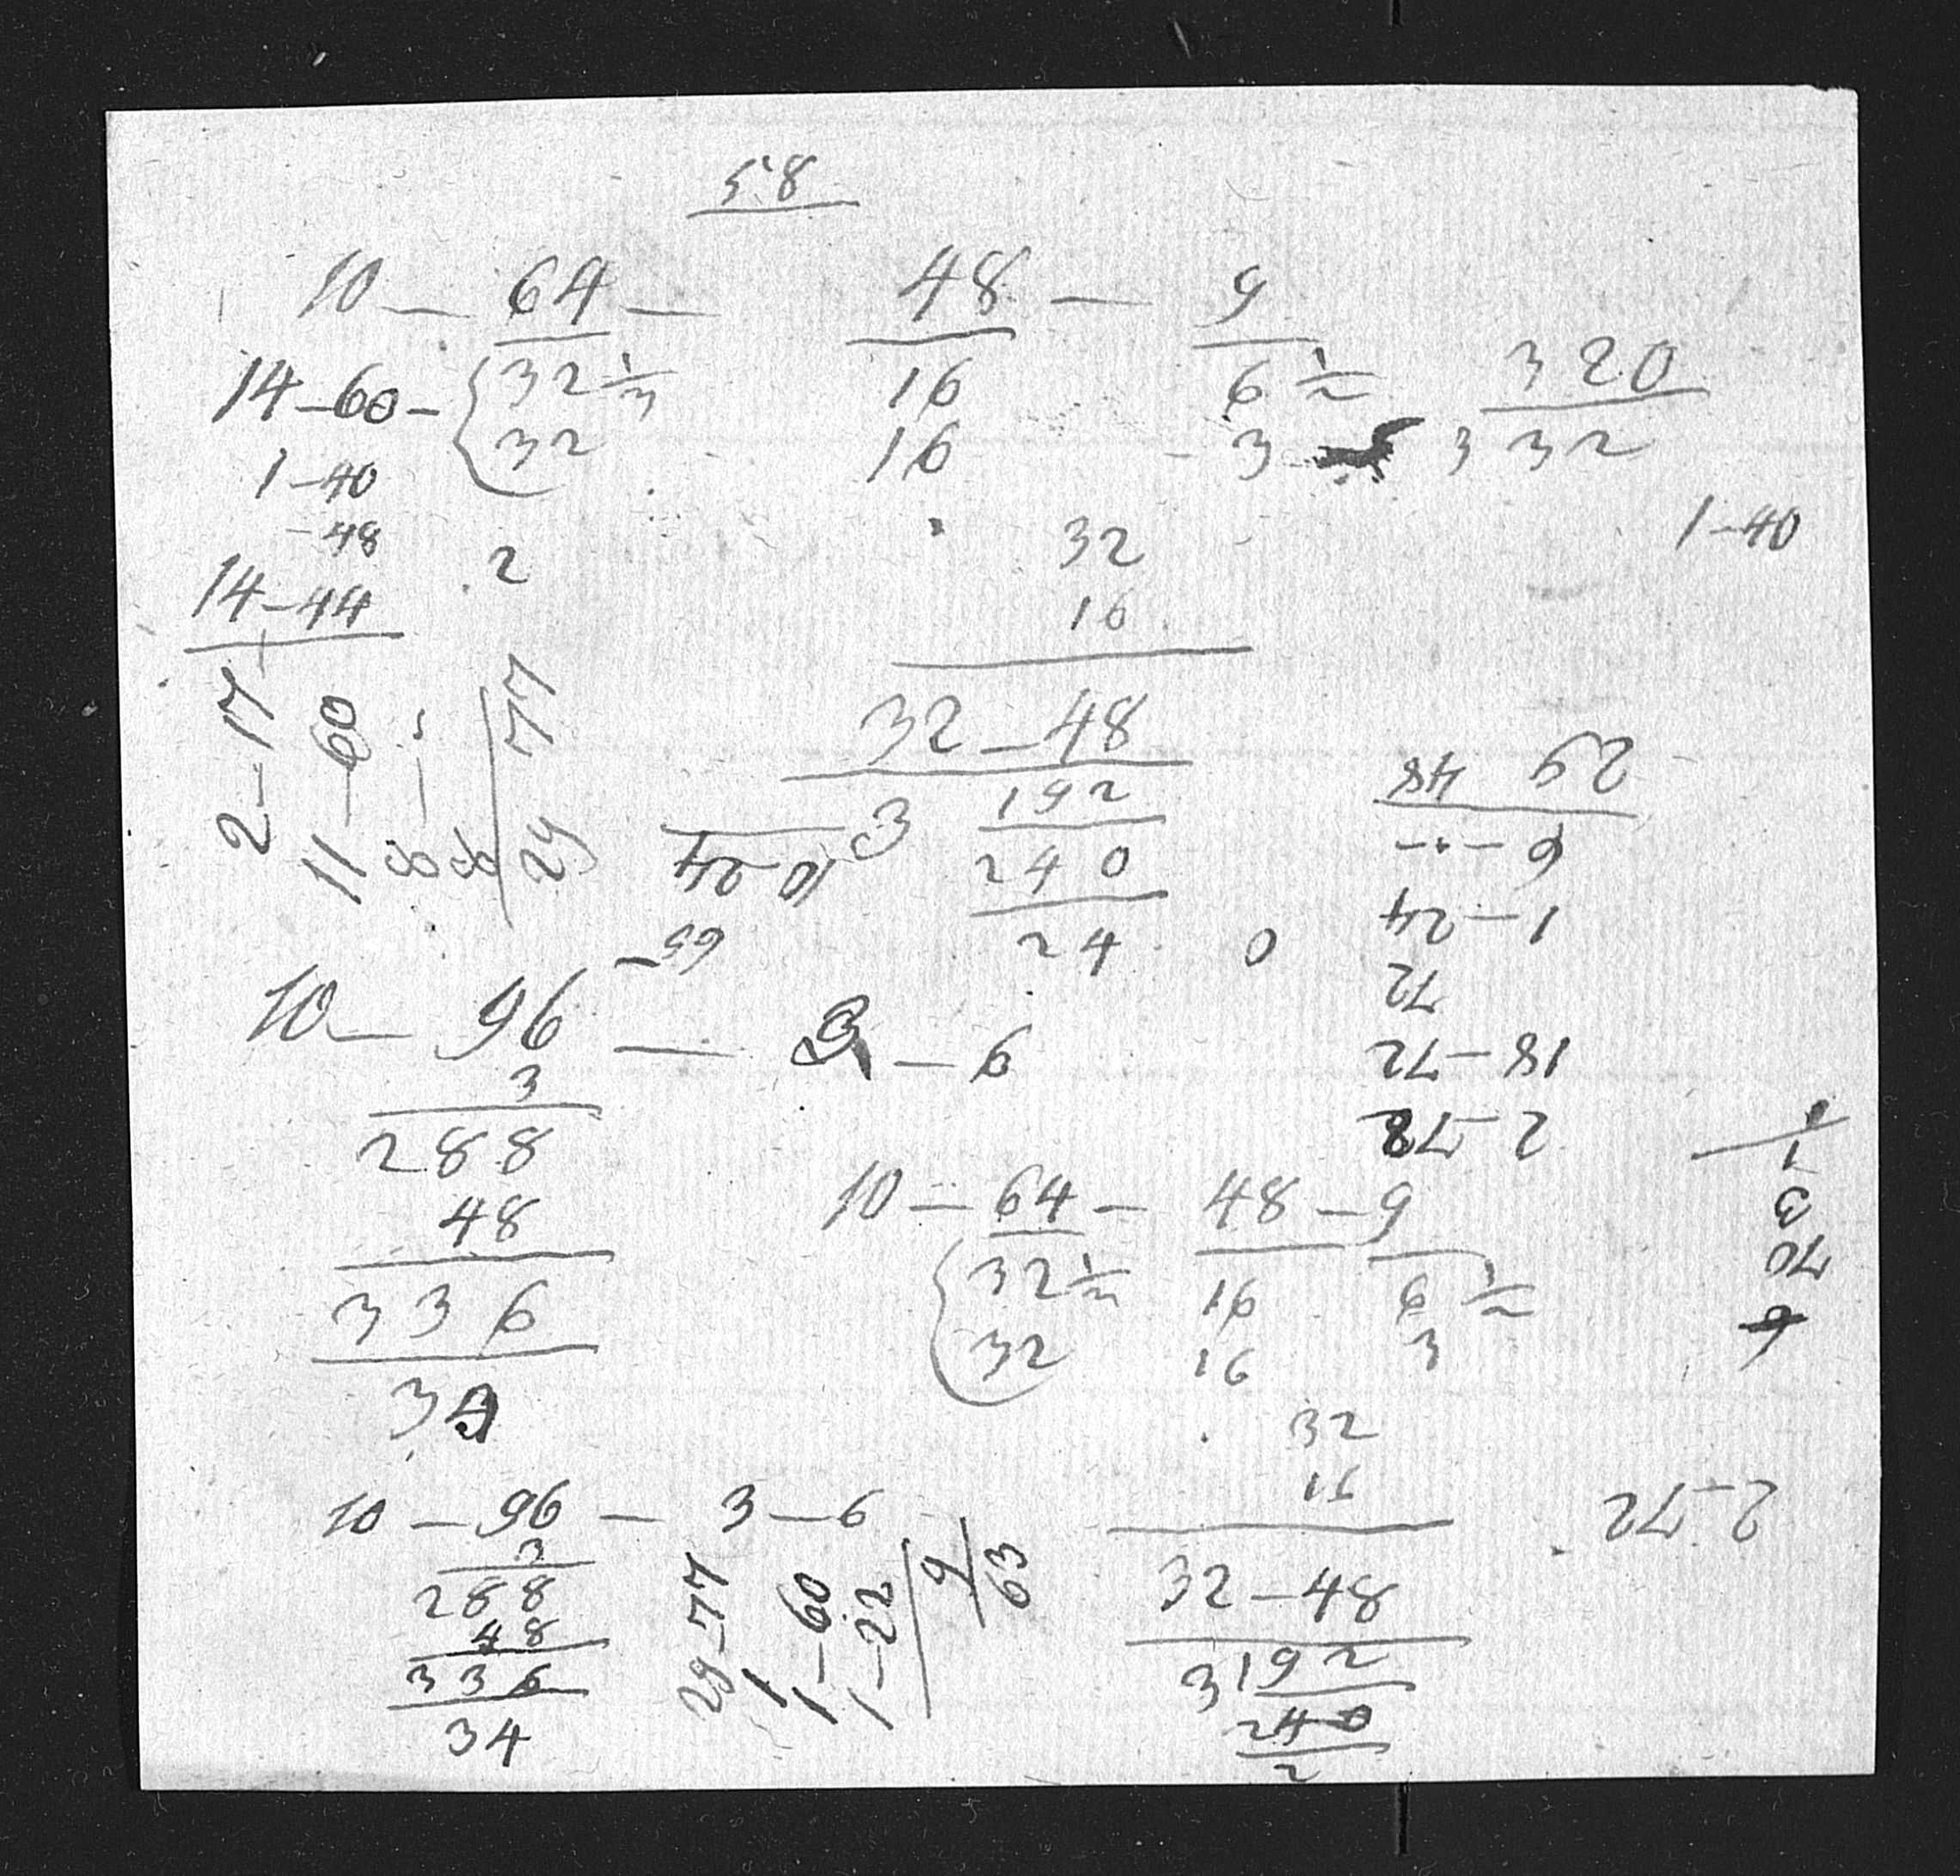 58
10 — 64 — 48 — 9
14 – 60 – { 32 1/3 16 6 1/2 320
32 16 3 3 32
1 – 40
– 48 2 32 1 – 40
14 – 44 16
32 – 48
3 192
240
24 0
2 – 17
11 — 60
8 —
8
29 77
10 – 24
10 — 96 — 3 — 6
3
288
48
336
34
29 48
6 – – –
1 – 24
72
18 – 72
2 – 78
10 — 64 — 48 – 9
{ 32 1/3 16 6 1/2
32 16 3
32
16
32 – 48
3 192
240
2
1
3
70
6
2 – 72
10 — 96 — 3 — 6
3
288
48
336
34
29 – 77
1 – 60
1 – 22
9
63